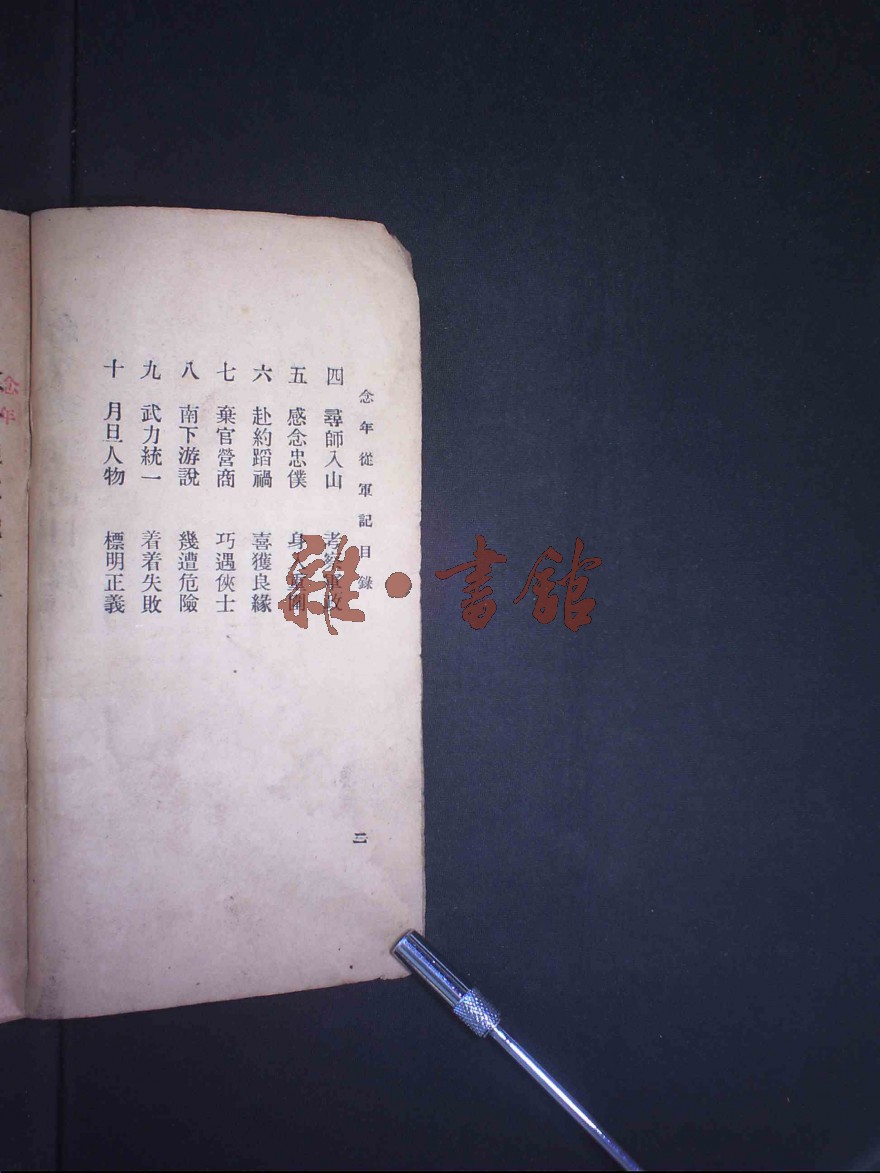 念年從軍記目錄
四 尋師入山 考察軍政
五 感念忠僕 身入
六 赴約蹈禍 喜獲良緣
七 棄官營商 巧遇俠士
八 南下游說 幾遭危險
九 武力統一 着着失敗
十 月旦人物 標明正義
二
雜·書館
念年